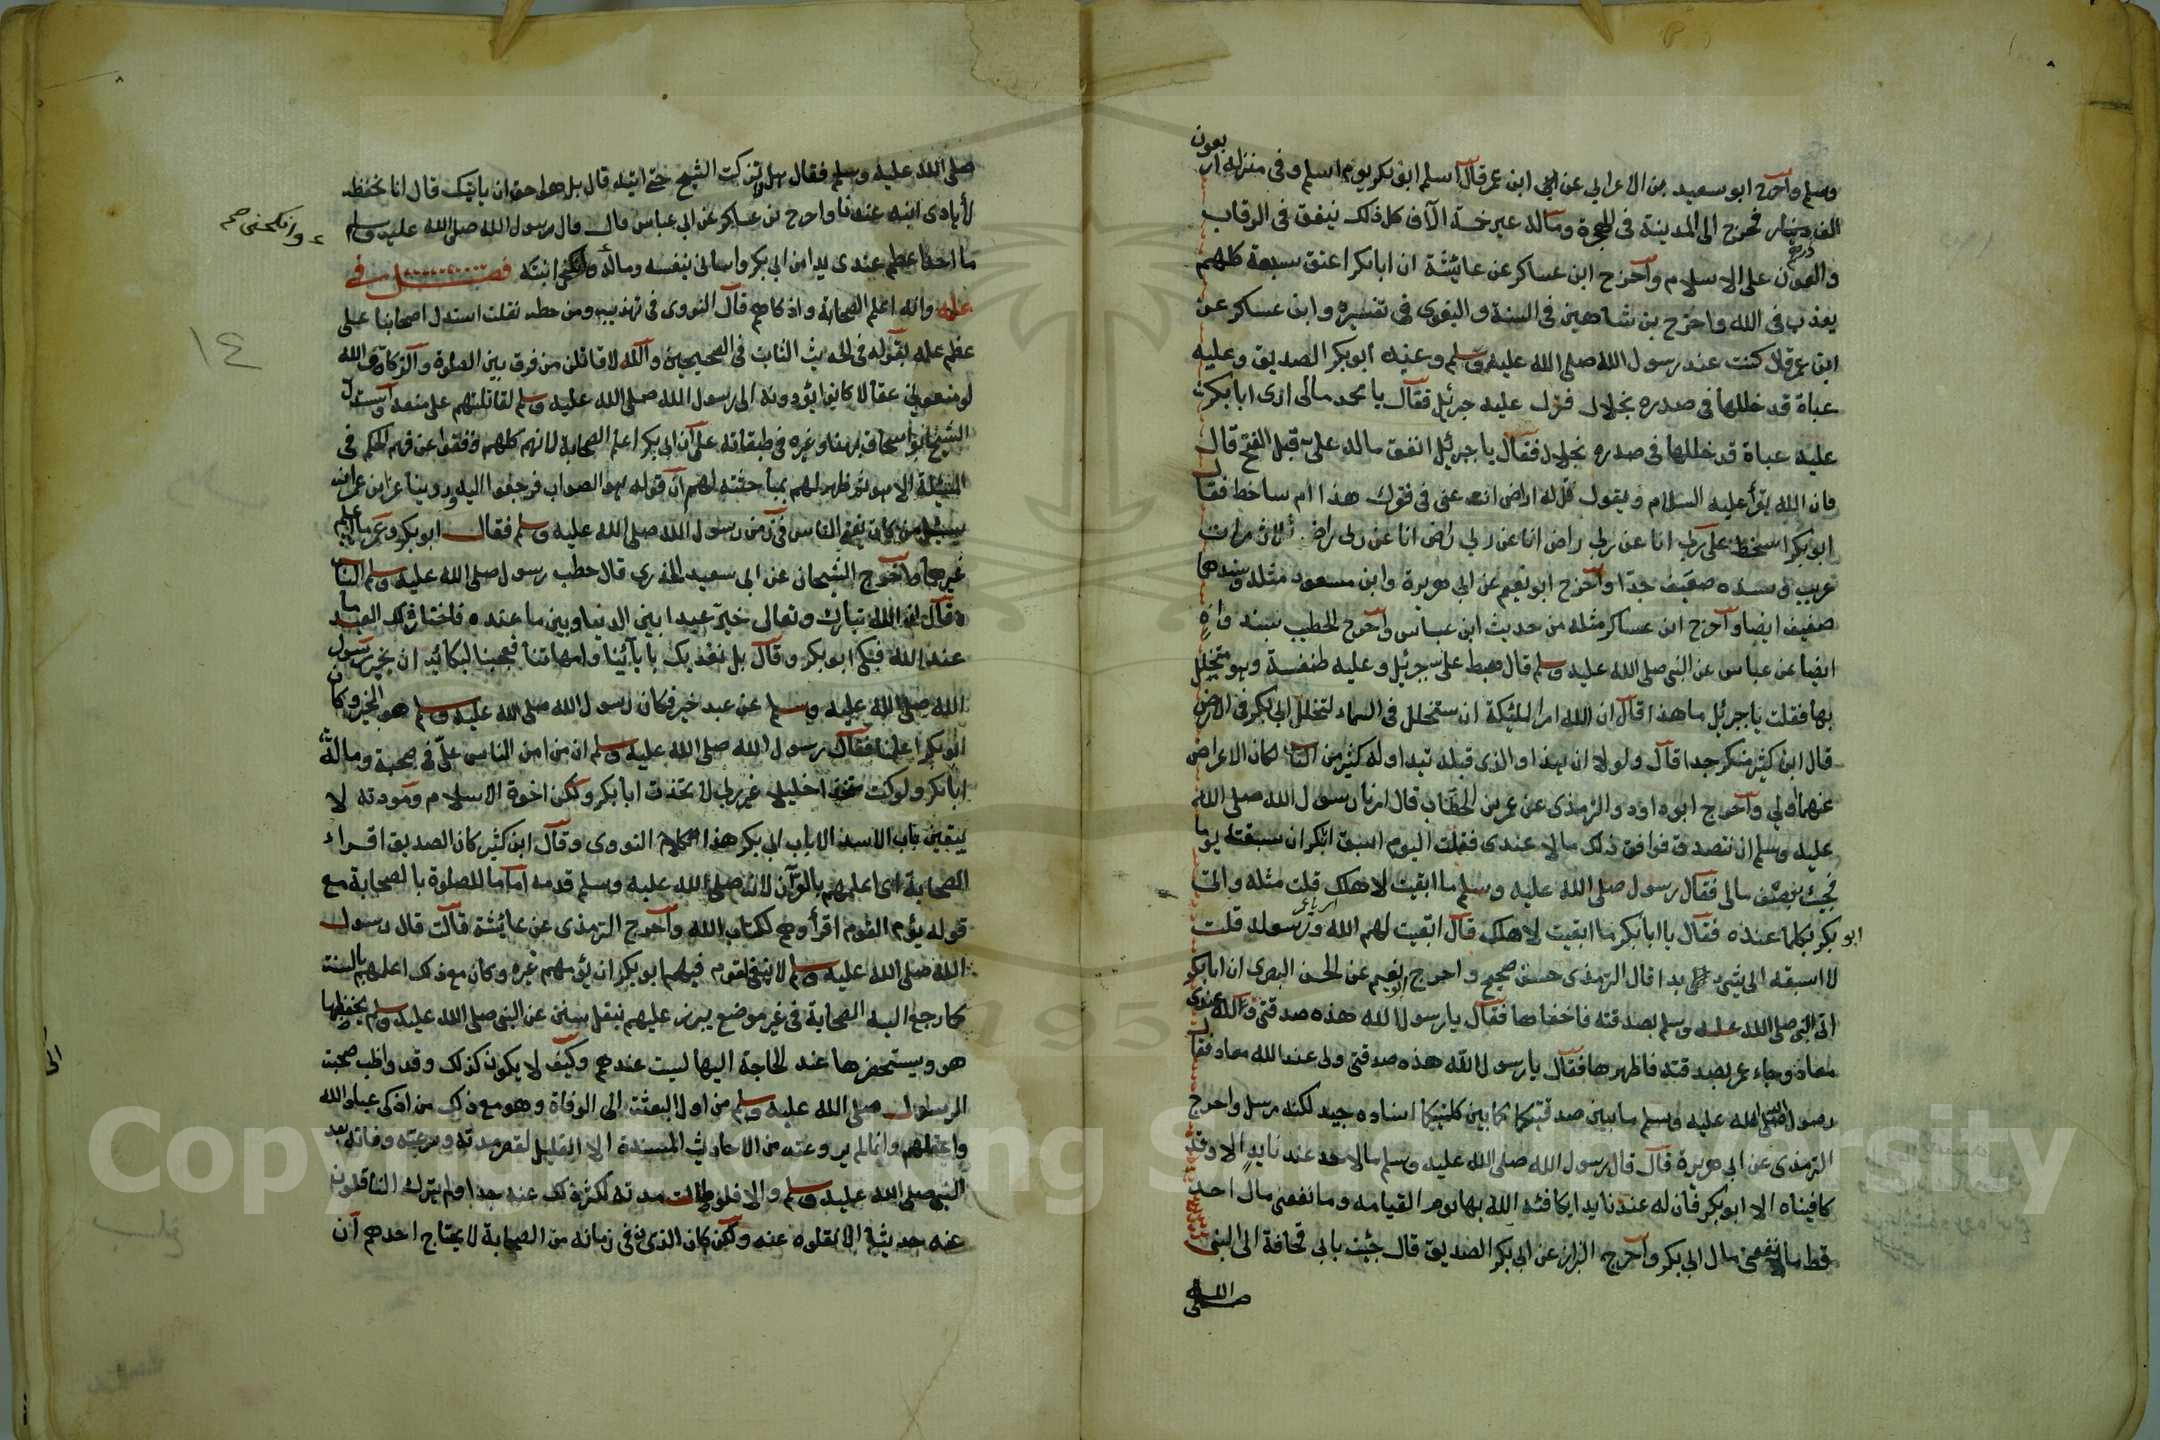 بعون
وسلم وآخرج ابو سعيد بن الاعرابي عن ابن عمر قال اسلم ابو بكر يوم اسلم وفي منزله ار
الف دينار فخرج الى المدينة في الهجرة وماله غير خمسة الآف كل ذلك ينفق في الرقاب
درهم
والعون على الاسلام وآخرج ابن عساكر عن عايشة ان ابابكر اعتق سبعة كلهم
يعذب في الله واخرج بن شاهين في السنة والبغوي في تفسيره وابن عساكر عن
ابن عمر قال كنت عند رسول الله صلى الله عليه وسلم وعنده ابو بكر الصديق وعليه
عباة قد خللها في صدره بخلال فنزل عليه جبرئيل فقال يا محمد مالي ارى ابا بكر
عليه عباة قد خللها في صدره بخلال فقال يا جبرئيل انفق ماله علي قبل الفتح قال
فان الله يقرأ عليه السلام ويقول قل له اراض انت عني في فقرك هذا ام ساخط فقال
ابو بكر اسخط على ربي انا عن ربي راض انا عن ربي راض انا عن ربي راض ثلاث مرات
غريب وسنده ضعيف جدا وآخرج ابو نعيم عن ابي هريرة وابن مسعود مثله وسندهما
ضعيف ايضا وآخرج ابن عساكر مثله من حديث ابن عباس وآخرج الخطيب بسند واه
ايضا عن عباس عن النبي صلى الله عليه وسلم قال هبط علي جبرئيل وعليه طنفسة وهو متخلل
بها فقلت يا جبرئيل ما هذا قال ان الله امر الملئكة ان ستخلل في السماء لتخلل ابي بكر في الارض
قال ابن كثير منكر جدا قال ولولا ان هذا والذي قبله تبداوله كثير من الناس لكان الاعراض
عنهما اولى وآخرج ابو داود والترمذي عن عمر بن الخطاب قال امرنا رسول الله صلى الله
عليه وسلم ان نتصدق فوافق ذلك مالا عندي فقلت اليوم اسبق ابكر ان سبقته يوما
فجيت بنصف مالي فقال رسول صلى الله عليه وسلم ما ابقيت لاهلك قلت مثله واتى
ابو بكر بكلما عنده فقال يا ابا بكر ما ابقيت لاهلك قال ابقيت لهم الله ورسوله قلت
لا اسبقه الى شيء ابدا قال الترمذي حسن صحيح واخرج ابو نعيم عن الحسن البصري ان ابابكر
اتى النبي صلى الله عليه وسلم بصدقته فاخفاها فقال يا رسول الله هذه صدقتي والله عندي
معاد وجاء عمر بصدقته فاظهرها فقال يا رسول الله هذه صدقتي ولي عند الله معاد فقال
رسول الله صلى الله عليه وسلم ما بين صدقتيكما كما بين كلمتيكما اسناده جيد لكنه مرسل واخرج
الترمذي عن ابي هريرة قال قال رسول الله صلى الله عليه وسلم ما لاحد عندنا يد الا وقد
كافيناه الا ابو بكر فان له عندنا يدا يكافئه الله بها يوم القيامه وما نفعني مال احد
قط ما نفعني مال ابي بكر وآخرج البزار عن ابي بكر الصديق قال جئت بابي قحافة الى النبي
صلى الله
صلى الله عليه وسلم فقال هلا تركت الشيخ حتى اتيه قال بل هو احق ان ياتيك قال انا نحفظه
لأيادي ابنه عندنا واخرج بن عساكر عن ابي عباس قال قال رسول الله صلى الله عليه وسلم
وانكحني صح
ما احد اعظم عندي يدا من ابي بكر واساني بنفسه وماله وانكحني ابنته فصل في
علمه وانه اعلم الصحابة واذكاهم قال النووي في تهذيبه ومن خطه نقلت استدل اصحابنا على
عظم علمه بقوله في الحديث الثابت في الصحيحين والله لاقاتلن من فرق بين الصلوة والزكاة والله
لو منعوني عقالا كانوا يؤدونه الى رسول الله صلى الله عليه وسلم لقاتلتهم على منعه واستدل
الشيخ ابو اسحاق بهذا وغيره في طبقاته على ان ابي بكر اعلم الصحابة لانهم كلهم وقفوا عن فهم الحكم في
المسئلة الا هو ثم ظهر لهم بمباحثته لهم ان قوله هو الصواب فرجعوا اليه وروينا عن ابن عمر انه
سئل من كان يفتي الناس في زمن رسول الله صلى الله عليه وسلم فقال ابو بكر وعمر ما اعلم
غيرهما وآخرج الشيخان عن ابي سعيد الخدري قال خطب رسول صلى الله عليه وسلم الناس
وقال ان الله تبارك وتعالى خير عبدا بين الدنيا وبين ما عنده فاختار ذلك العبد ما
عند الله فبكى ابو بكر وقال بل نفديك بابآئنا وامهاتنا فعجبنا لبكائه ان يخبر رسول
الله صلى الله عليه وسلم عن عبد خير فكان رسول الله صلى الله عليه وسلم هو المخير وكان
ابو بكر اعلمنا فقال رسول الله صلى الله عليه وسلم ان من امن الناس علي في صحبته وماله
ابا بكر ولو كنت متخذا خليلا غير ربي لاتخذت ابا بكر ولكن اخوة الاسلام ومودته لا
يبقين باب الا سد الا باب ابي بكر هذا الكلام النووي وقال ابن كثير كان الصديق اقراء
الصحابة اى اعلمهم بالقرآن لانه صلى الله عليه وسلم قدمه اماما للصلوة بالصحابة مع
قوله يؤم القوم اقرأوهم لكتاب الله وآخرج الترمذي عن عايشة قالت قال رسول
الله صلى الله عليه وسلم لا ينبغي لقوم فيهم ابو بكر ان يؤمهم غيره وكان مع ذلك اعلمهم بالسنة
كما رجع اليه الصحابة في غير موضع يبرز عليهم بنقل سنن عن النبي صلى الله عليه وسلم يحفظها
هو ويستحضرها عند الحاجة اليها ليست عندهم وكيف لا يكون كذلك وقد واظب صحبته
الرسول صلى الله عليه وسلم من اول البعثة الى الوفاة وهو مع ذلك من اذكى عباد الله
واعقلهم وانما لم يرو عنه من الاحاديث المسندة الا القليل لقصر مدته وسرعة وفاته بعد
النبي صلى الله عليه وسلم والا فلو طالت مدته لكثر ذلك عنه جدا ولم يترك الناقلون
عنه حديثا الا نقلوه عنه ولكن كان الذي في زمانه من الصحابة لا يحتاج احدهم ان
١٤
1957
Copy
ng S
ersity